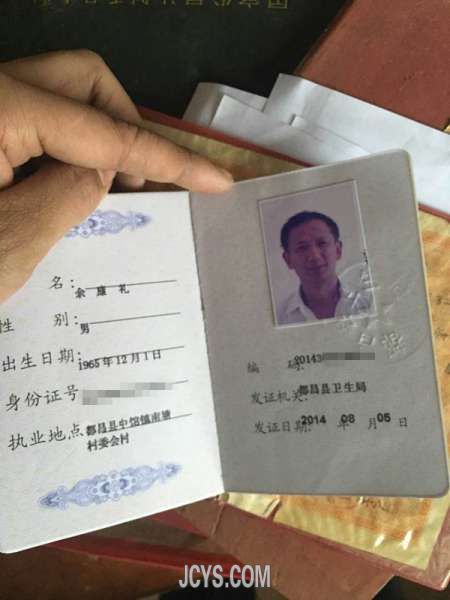 姓 名: 余康礼
性 别: 男
出生日期: 1965年12月1日
身份证号
执业地点 都昌县中馆镇南塘
村委会村
编 码: 20143
发证机关: 都昌县卫生局
发证日期: 2014 年 08 月 05 日
JCYS.COM